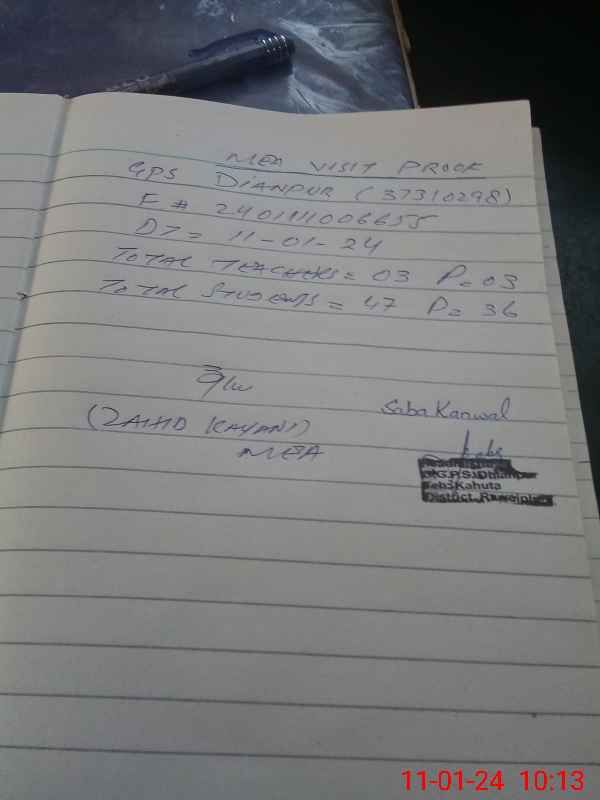 MEA VISIT PROOF
GPS DIANPUR (37310298)
F # 2401111006655
DT = 11-01-24
TOTAL TEACHERS = 03 P= 03
TOTAL STUDENTS = 47 P= 36
(ZAHID KAYANI)
MEA
Saba Kanwal
G.P.S Dhianpur
Teh: Kahuta
District Rawalpindi
11-01-24 10:13